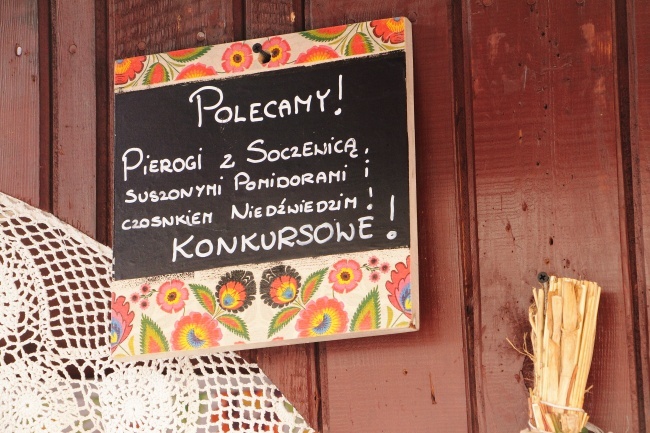 Polecamy!
Pierogi z Soczenicą,
suszonymi Pomidorami i
czosnkiem Niedźwiedzim!
KONKURSOWE!